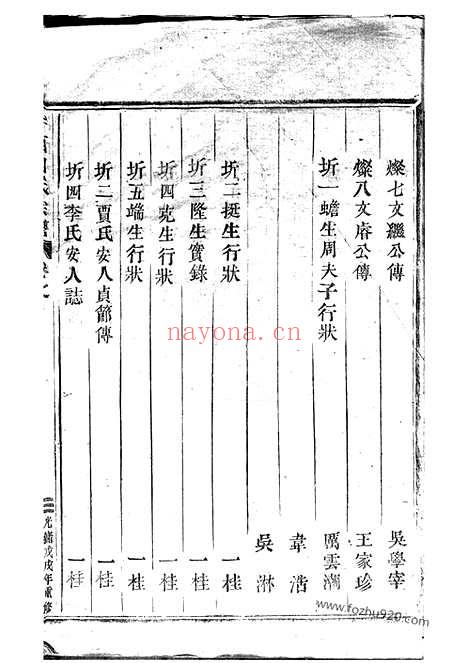 燦七文繼公傳 吳學宰
燦八文㾿公傳 王家珍
圻一蟾生周夫子行狀 厲雲瀾
韋浩
吳淋
圻二挺生行狀 一桂
圻三隆生實錄 一桂
圻四克生行狀 一桂
圻五端生行狀 一桂
圻二賈氏安人貞節傳 一桂
圻四李氏安人誌 一桂
光緒戊戌年重修
nayona.cn
www.fozhu920.com